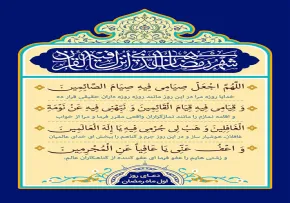 شهر رمضان الذی انزل فیه القرآن
اَللّهُمَ اجْعَلْ صِیامی فیهِ صِیامَ الصّائِمینَ
خدایا روزه مرا در این روز مانند روزه روزه داران حقیقی قرار ده
وَ قِیامی فیهِ قِیامَ القائِمینَ وَ نَبِّهْنی فیهِ عَنْ نَوْمَةِ
و اقامه نمازم را مانند نمازگزاران واقعی مقرر فرما و مرا از خواب
الغافِلینَ وَ هَبْ لی جُرْمی فیهِ یا اِلهَ العالَمینَ
غافلان هوشیار ساز و در این روز جرم و گناهم را ببخش ای خدای عالمیان
وَ اعْفُ عَنّی یا عافِیاً عَنِ المُجْرِمینَ
و زشتی هایم را عفو فرما ای عفو کننده از گناهکاران عالم
دعای روز
اول ماه رمضان